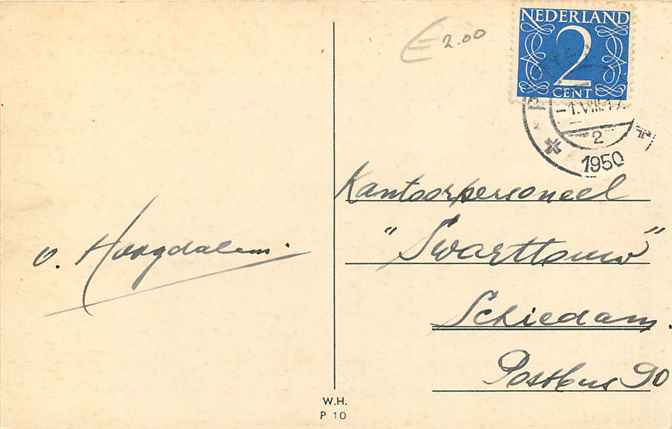 € 2.00
NEDERLAND
2
CENT
-1.VIII.17
2
1950
Kantoorpersoneel
"Swarttouw"
Schiedam.
Postbus 90
v. Hoogdalem.
W.H.
P 10